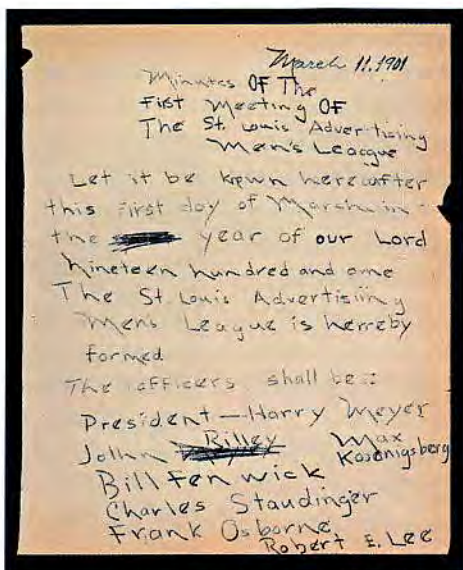 March 11, 1901
Minutes OF The
First Meeting OF
The St. Louis Advertising
Men's Leacgue
Let it be kpwn hereafter
this first day of March in
the year of our Lord
Nineteen hundred and one
The St Louis Advertisiing
Mens League is herreby
formed
The officers shall be:
President — Harry Meyer
Jolhn Rilley Max
Kosonigsberg
Bill Fenwick
Charles Staudinger
Frank Osborne
Robert E. Lee